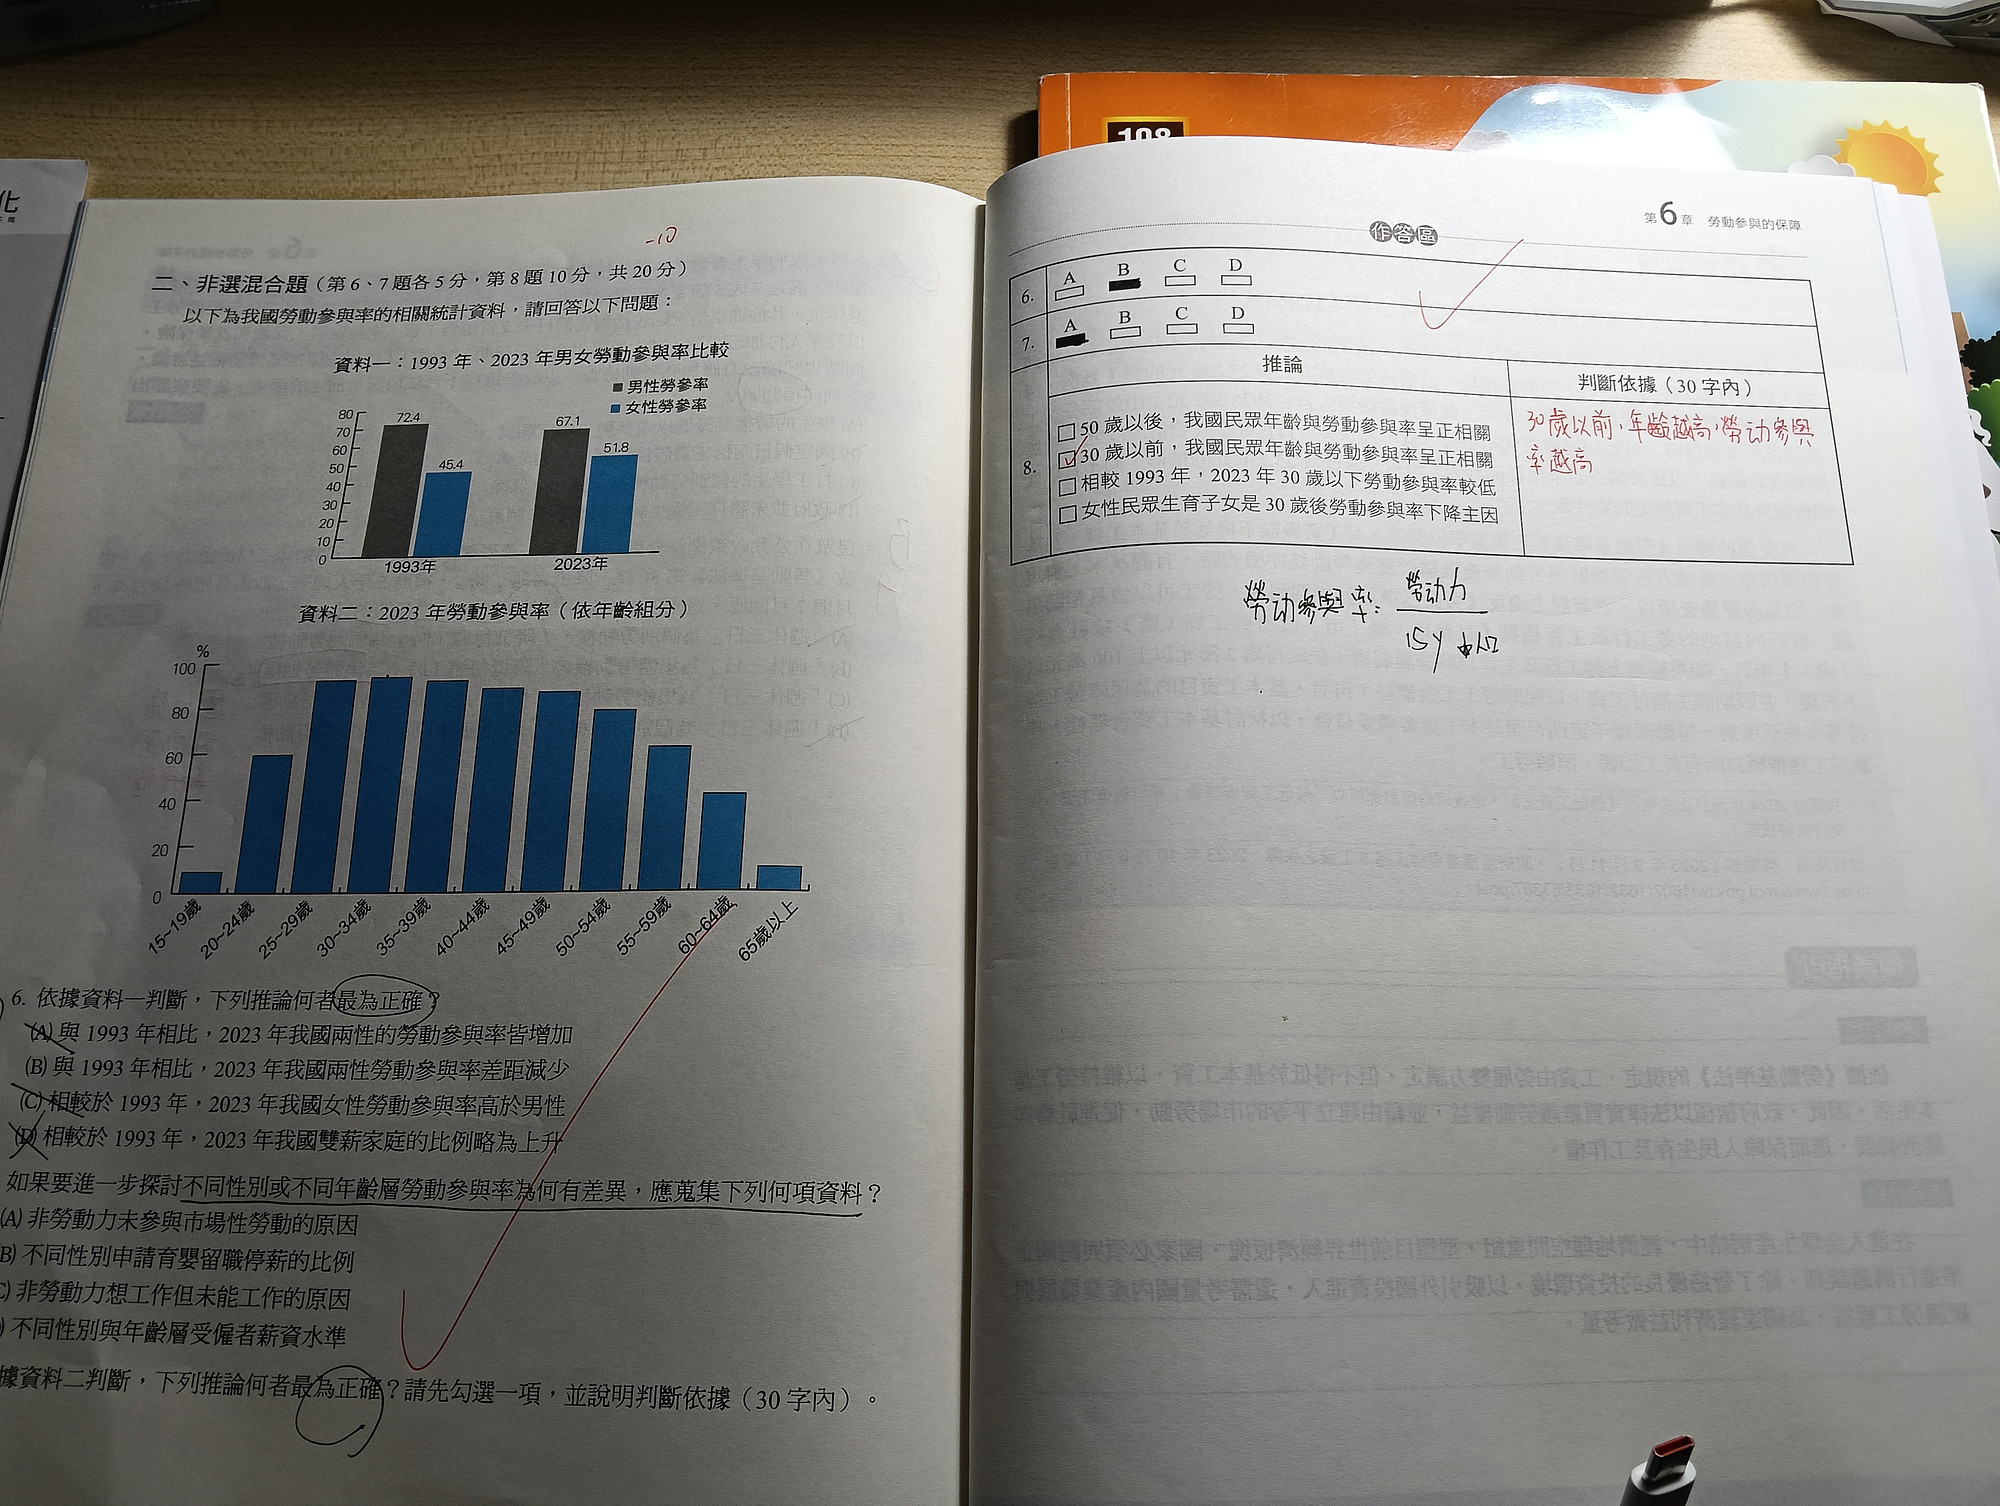 化
108
-10
二、非選混合題（第 6、7 題各 5 分，第 8 題 10 分，共 20 分）
以下為我國勞動參與率的相關統計資料，請回答以下問題：
資料一：1993 年、2023 年男女勞動參與率比較
男性勞參率
女性勞參率
80
70
60
50
40
30
20
10
0
72.4
45.4
67.1
51.8
1993年
2023年
資料二：2023 年勞動參與率（依年齡組分）
%
100
80
60
40
20
0
15~19歲
20~24歲
25~29歲
30~34歲
35~39歲
40~44歲
45~49歲
50~54歲
55~59歲
60~64歲
65歲以上
6. 依據資料一判斷，下列推論何者最為正確？
(A) 與 1993 年相比，2023 年我國兩性的勞動參與率皆增加
(B) 與 1993 年相比，2023 年我國兩性勞動參與率差距減少
(C) 相較於 1993 年，2023 年我國女性勞動參與率高於男性
(D) 相較於 1993 年，2023 年我國雙薪家庭的比例略為上升
如果要進一步探討不同性別或不同年齡層勞動參與率為何有差異，應蒐集下列何項資料？
(A) 非勞動力未參與市場性勞動的原因
B) 不同性別申請育嬰留職停薪的比例
C) 非勞動力想工作但未能工作的原因
) 不同性別與年齡層受僱者薪資水準
據資料二判斷，下列推論何者最為正確？請先勾選一項，並說明判斷依據（30 字內）。
第6章 勞動參與的保障
作答區
6. A B C D
7. A B C D
推論
判斷依據（30 字內）
8.
50 歲以後，我國民眾年齡與勞動參與率呈正相關
30 歲以前，我國民眾年齡與勞動參與率呈正相關
相較 1993 年，2023 年 30 歲以下勞動參與率較低
女性民眾生育子女是 30 歲後勞動參與率下降主因
30歲以前，年齡越高，勞动參與
率越高
勞动參與率：
勞动力
15y 人口